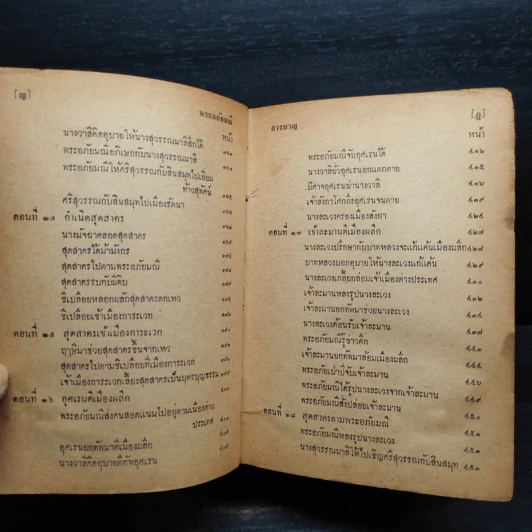 [ญ]
พระอภัยมณี
หน้า
นางวาลีคิดอุบายให้นางสุวรรณมาลีสึกได้
พระอภัยมณีอภิเษกกับนางสุวรรณมาลี
พระอภัยมณีให้ศรีสุวรรณกับสินสมุทไปเยี่ยม
ท้าวสุทัศน์
ศรีสุวรรณกับสินสมุทไปเมืองรัตนา
ตอนที่ ๒๔ กำเนิดสุดสาคร
นางมัจฉาคลอดสุดสาคร
สุดสาครได้ม้ามังกร
สุดสาครไปตามพระอภัยมณี
สุดสาครรบกับผีดิบ
ชีเปลือยหลอกผลักสุดสาครตกเหว
ชีเปลือยเข้าเมืองการะเวก
ตอนที่ ๒๕ สุดสาครเข้าเมืองการะเวก
ฤๅษีมาช่วยสุดสาครขึ้นจากเหว
สุดสาครไปตามชีเปลือยที่เมืองการะเวก
เจ้าเมืองการะเวกเลี้ยงสุดสาครเป็นบุตรบุญธรรม
ตอนที่ ๒๖ อุศเรนตีเมืองผลึก
พระอภัยมณีส่งคนสอดแนมไปอยู่ตามเมืองต่าง
ประเทศ
อุศเรนยกทัพมาตีเมืองผลึก
นางวาลีคิดอุบายตีทัพอุศเรน
[ฎ]
สารบาญ
หน้า
พระอภัยมณีจับอุศเรนได้ ๔๑๒
นางวาลียั่วอุศเรนอกแตกตาย ๔๑๕
ปีศาจอุศเรนฆ่านางวาลี ๔๑๖
เจ้าลังกาโศกถึงอุศเรนจนตาย ๔๑๙
นางละเวงครองเมืองลังกา ๔๒๑
ตอนที่ ๒๗ เจ้าละมานตีเมืองผลึก ๔๒๗
นางละเวงปรึกษากับบาทหลวงจะแก้แค้นเมืองผลึก ๔๒๗
บาทหลวงบอกอุบายให้นางละเวงแก้แค้น
นางละเวงเกลี้ยกล่อมเจ้าเมืองต่างประเทศ
เจ้าละมานหลงรูปนางละเวง ๔๓๒
เจ้าละมานยกทัพมาช่วยนางละเวง
นางละเวงต้อนรับเจ้าละมาน ๔๓๗
พระอภัยมณีรู้ข่าวศึก
เจ้าละมานยกทัพมาล้อมเมืองผลึก
พระอภัยเป่าปี่จับเจ้าละมาน
พระอภัยมณีได้รูปนางละเวงจากเจ้าละมาน ๔๔๖
พระอภัยมณีสั่งปล่อยเจ้าละมาน ๔๔๙
ตอนที่ ๒๘ สุดสาครตามพระอภัยมณี ๔๕๑
พระอภัยมณีหลงรูปนางละเวง ๔๕๑
นางสุวรรณมาลีให้ไปเชิญศรีสุวรรณกับสินสมุท ๔๕๓